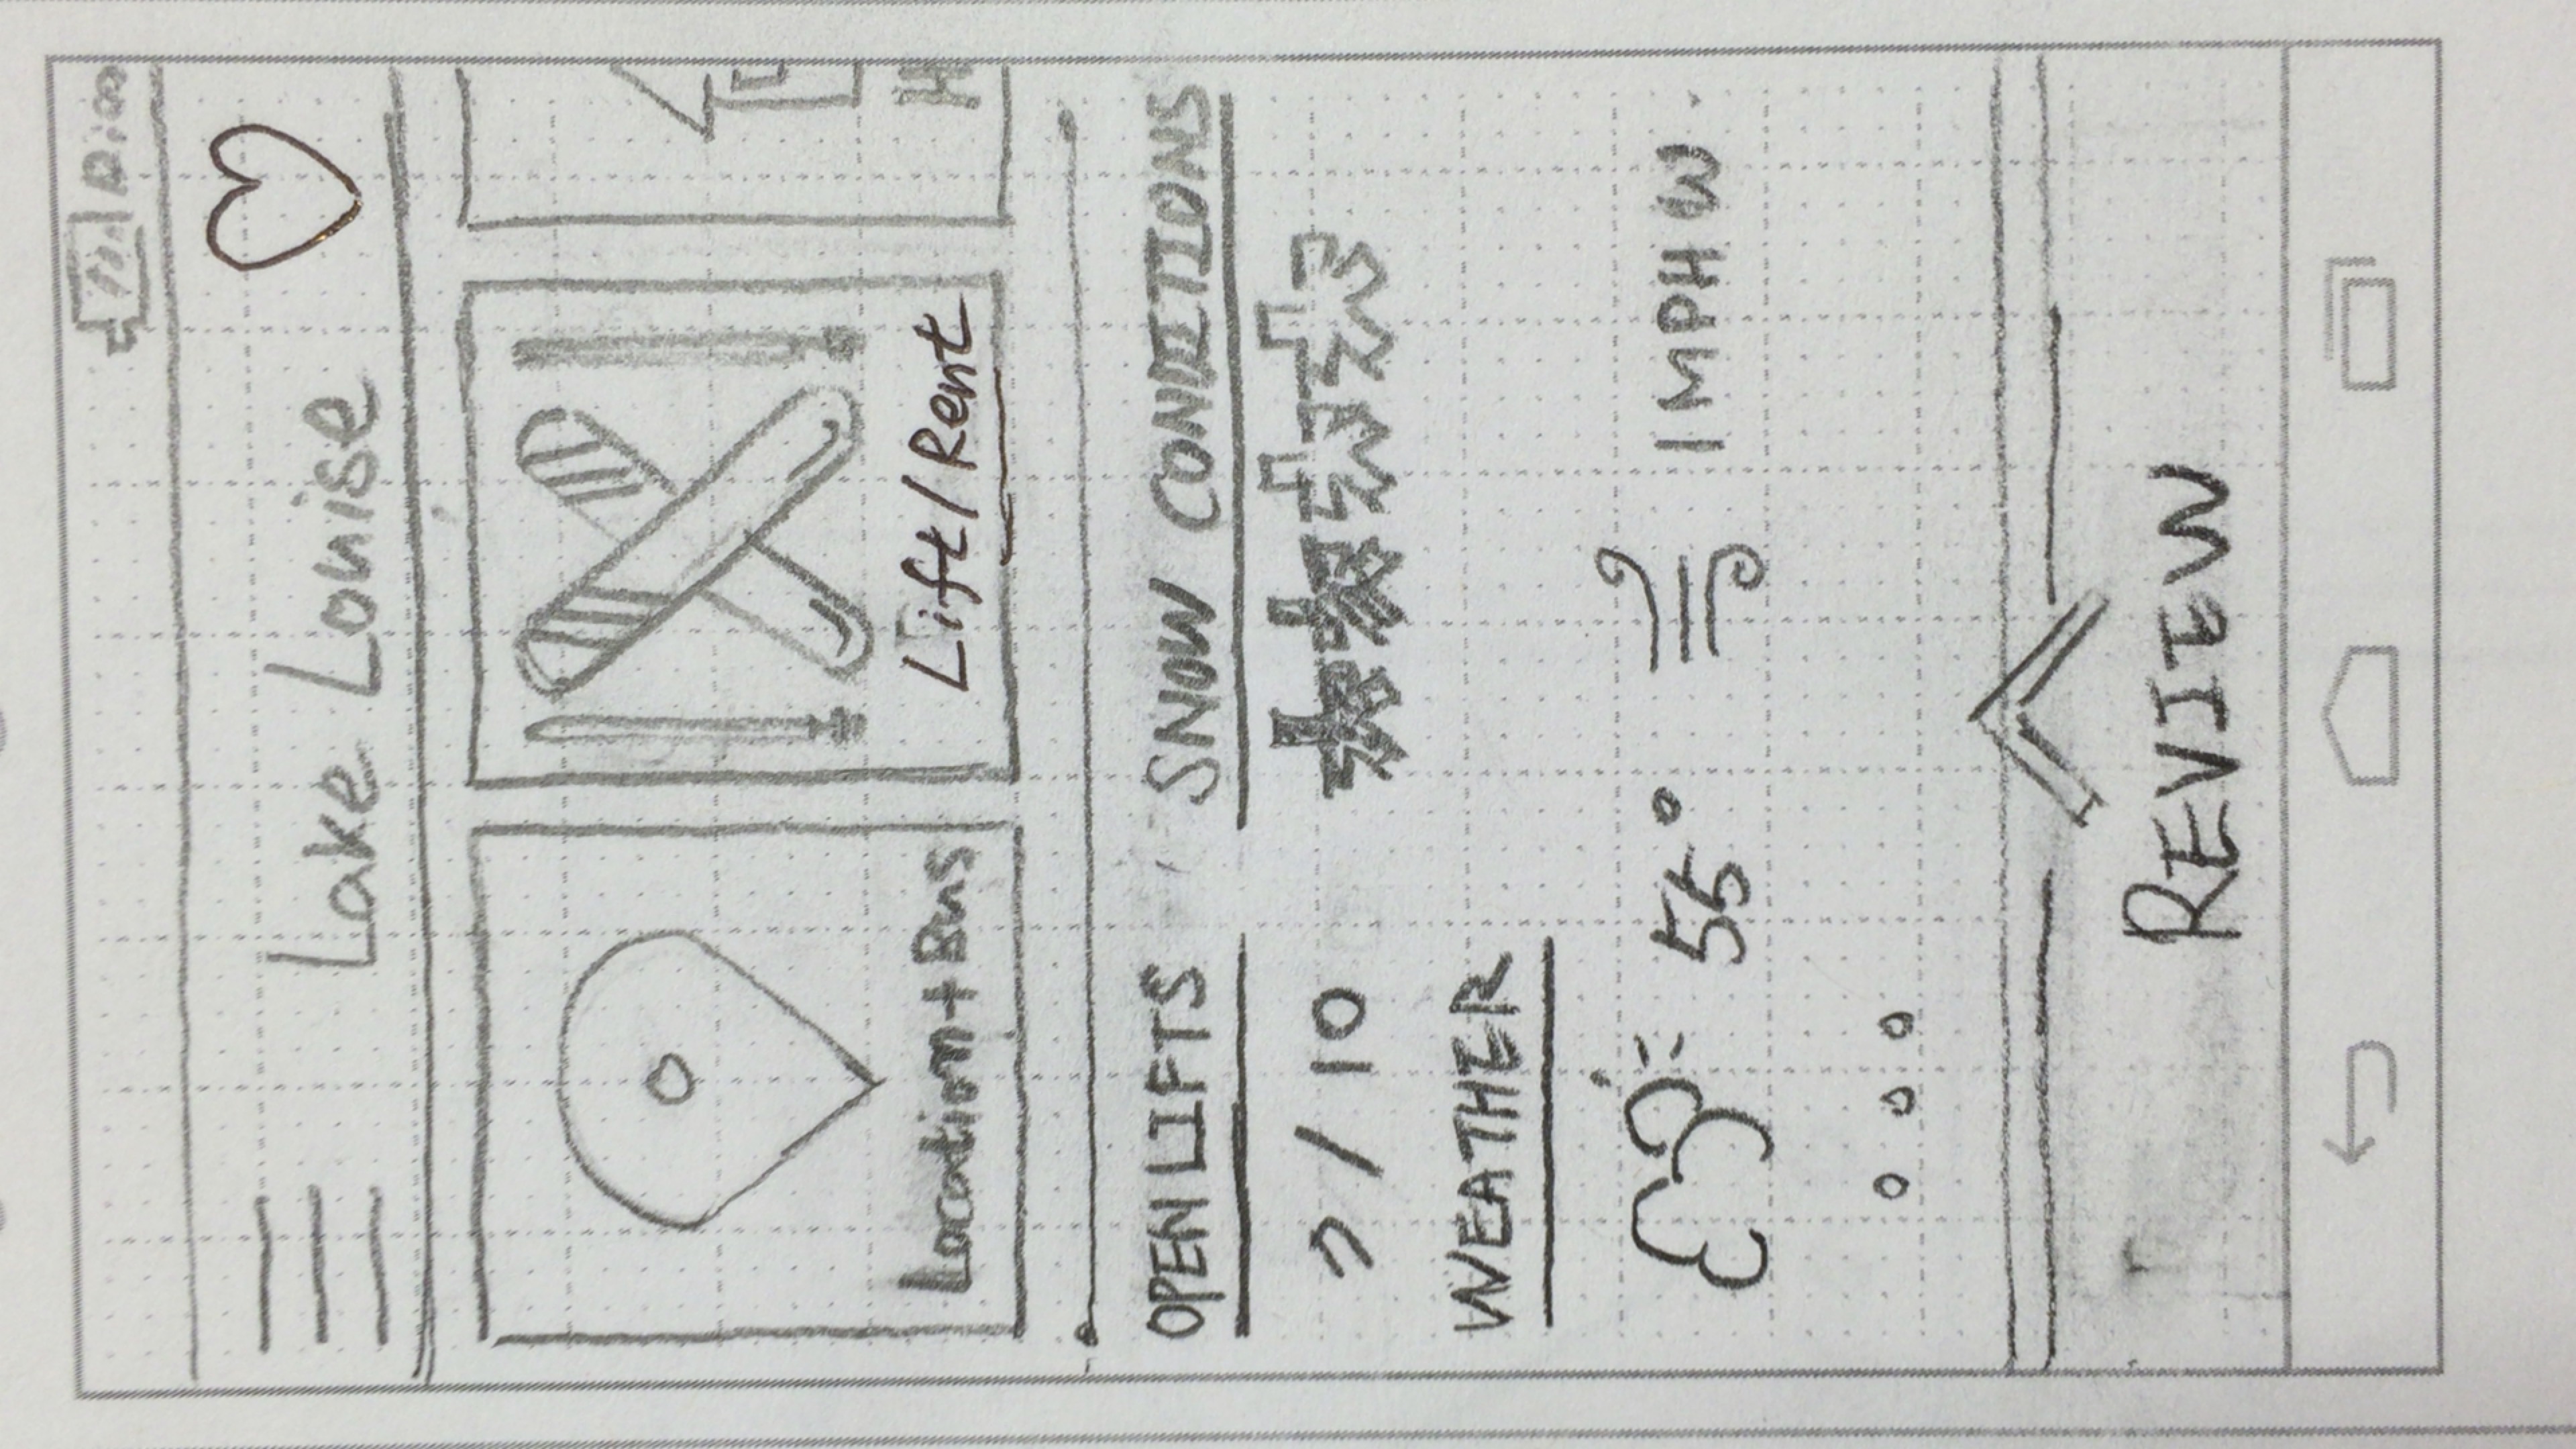 Lake Louise
Location + Bus
Lift / Rent
H
OPEN LIFTS
SNOW CONDITIONS
7 / 10
WEATHER
55°
1 MPH W
REVIEW